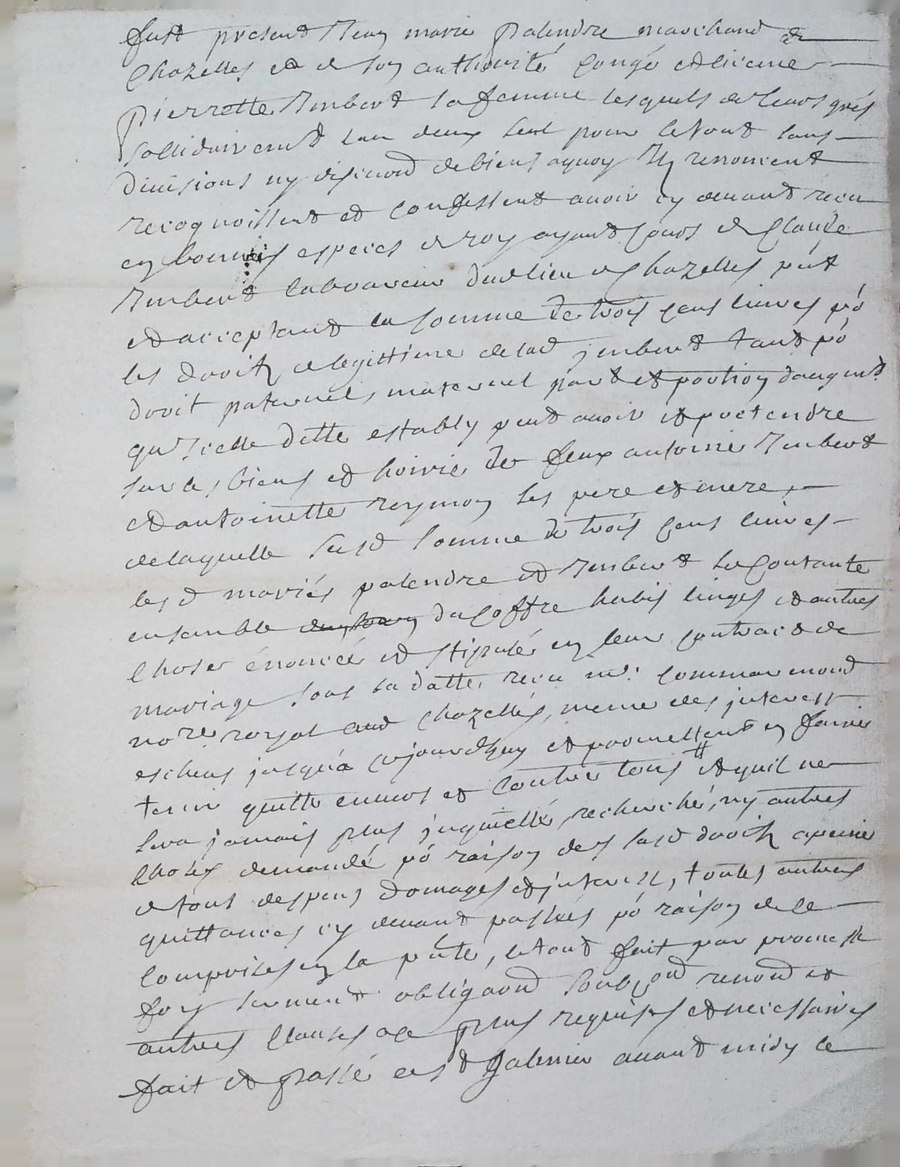 fust present Jean marie palendre marchand de
Chazelles et de son authorité congé et licence
pierrette Imbert sa femme lesquels de leurs grés
sollidairement lun deux seul pour le tout sans
divisions ny discution de biens aquoy Ils renoncent
recognoissent et confessent avoir cy devant receu
en bonnes especes de roy ayant cours de Claude
Imbert laboureur dud lieu de Chazelles pnt
et acceptant la somme de trois cens livres po
les droits de legittime de lad jmbert tant po
droit paternel, maternel part et portion daugmt
qu'Icelle ditte establÿ peut avoir et pretendre
sur les biens et hoirie de feux antoine Imbert
et antoinette reymon ses pere et mere,
de laquelle susd somme de trois cens livres
les d mariés palendre et Imbert se contante
ensemble du coffre habis linges et autres
choses énoncé et stipulé en leur contract de
mariage sous sa datte receu me
nore royal aud Chazelles, meme des jnterest
escheus jusquà cejourdhuy et promettent en faire
tenir quitte envers et contre tous # et quil ne
sera jamais plus jnquietté recherché, ny autres
choses demandé po raison des susd droits a peine
de tous despens domages et jnterest, toutes autres
quittances cy devant passées po raison de ce
comprises en la pnte, le tout fait par promesse
foy serment obligaon soubon renond et
autres clauses a ce plus requises et necessaires
fait et passé a st Galmier avant midy le